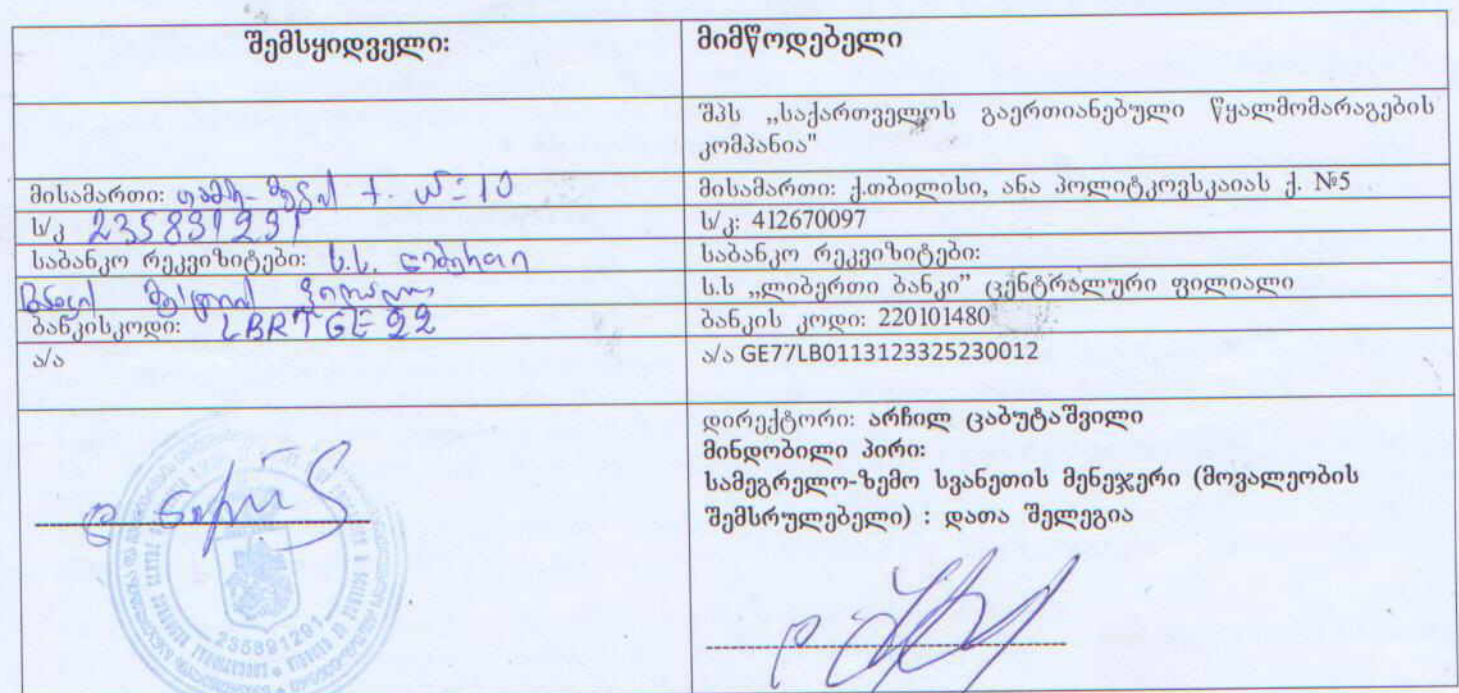 შემსყიდველი:
მიმწოდებელი
შპს „საქართველოს გაერთიანებული წყალმომარაგების
კომპანია"
მისამართი: თამარ-მეფის ქ. №=10
მისამართი: ქ.თბილისი, ანა პოლიტკოვსკაიას ქ. №5
ს/კ 235891291
ს/კ: 412670097
საბანკო რეკვიზიტები: ს.ს. ლიბერთი
საბანკო რეკვიზიტები:
ბანკის მესტიის
ს.ს „ლიბერთი ბანკი” ცენტრალური ფილიალი
ბანკისკოდი: LBRTGE22
ბანკის კოდი: 220101480
ა/ა
ა/ა GE77LB0113123325230012
დირექტორი: არჩილ ცაბუტაშვილი
მინდობილი პირი:
სამეგრელო-ზემო სვანეთის მენეჯერი (მოვალეობის
შემსრულებელი) : დათა შელეგია
235891291